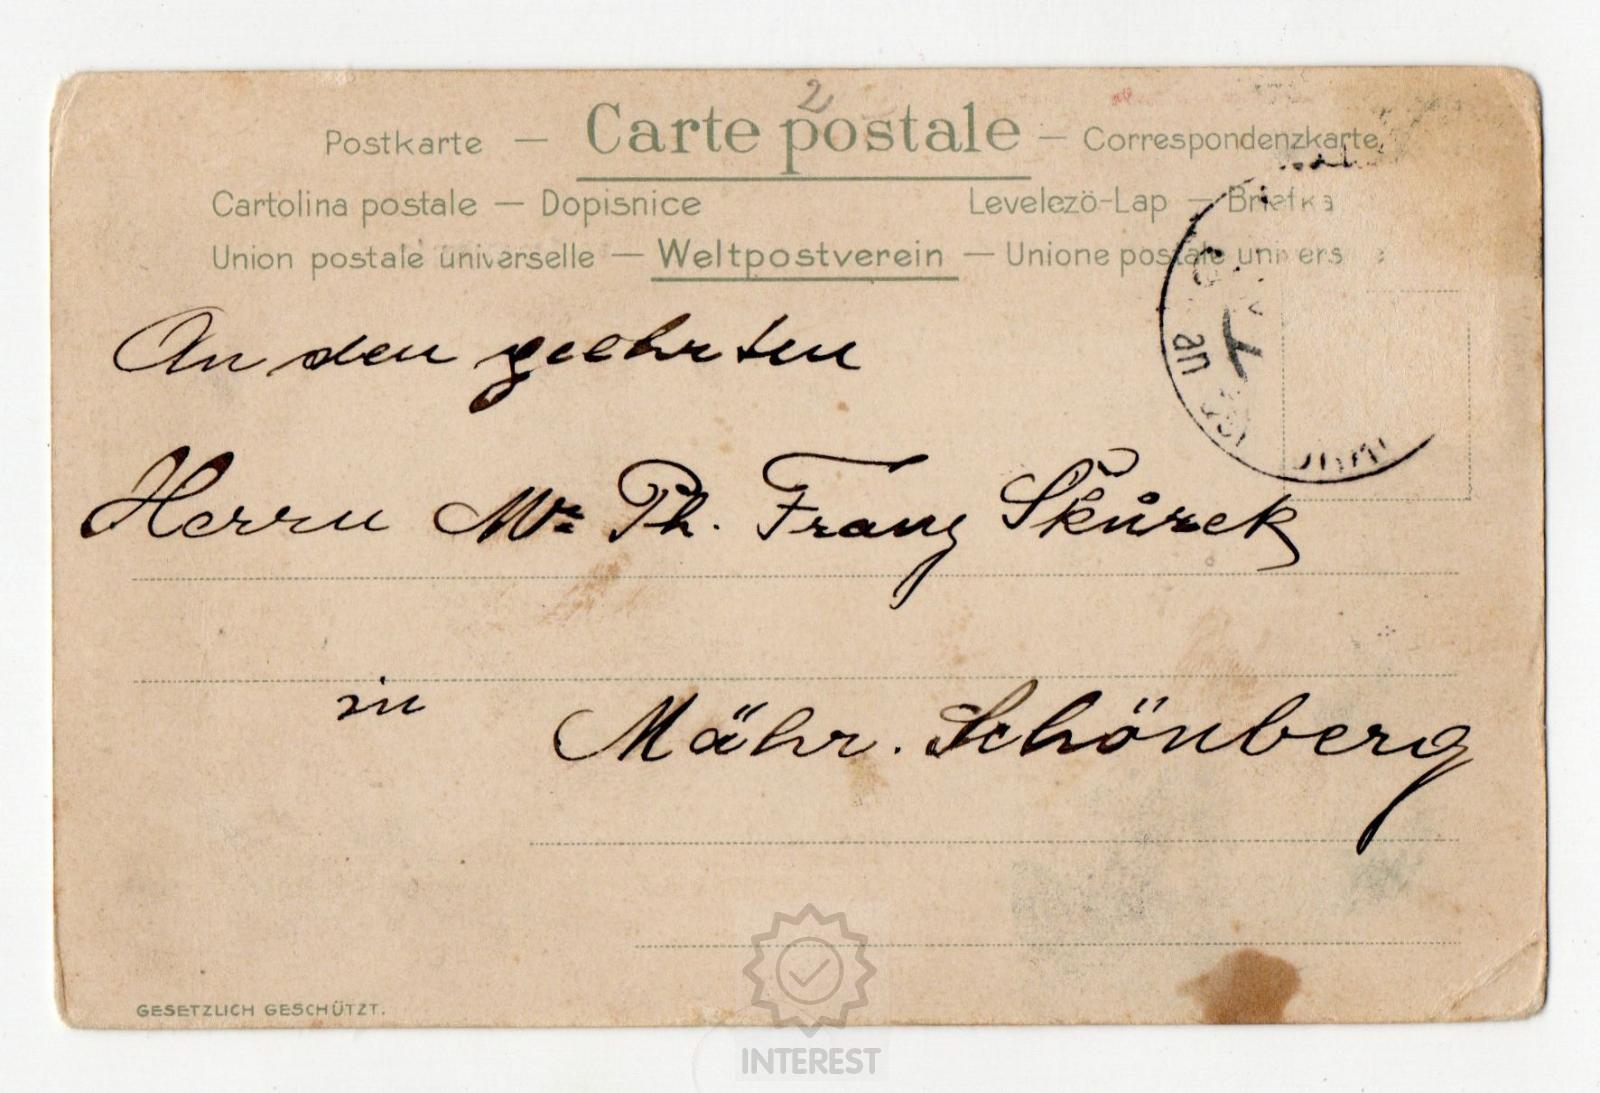 2
Postkarte — Carte postale — Correspondenzkarte
Cartolina postale — Dopisnice Levelezö-Lap —
Union postale universelle — Weltpostverein — Unione postale
An den geehrten
Herrn Mr Ph. Franz Škůrek
in Mähr. Schönberg
GESETZLICH GESCHÜTZT.
INTEREST